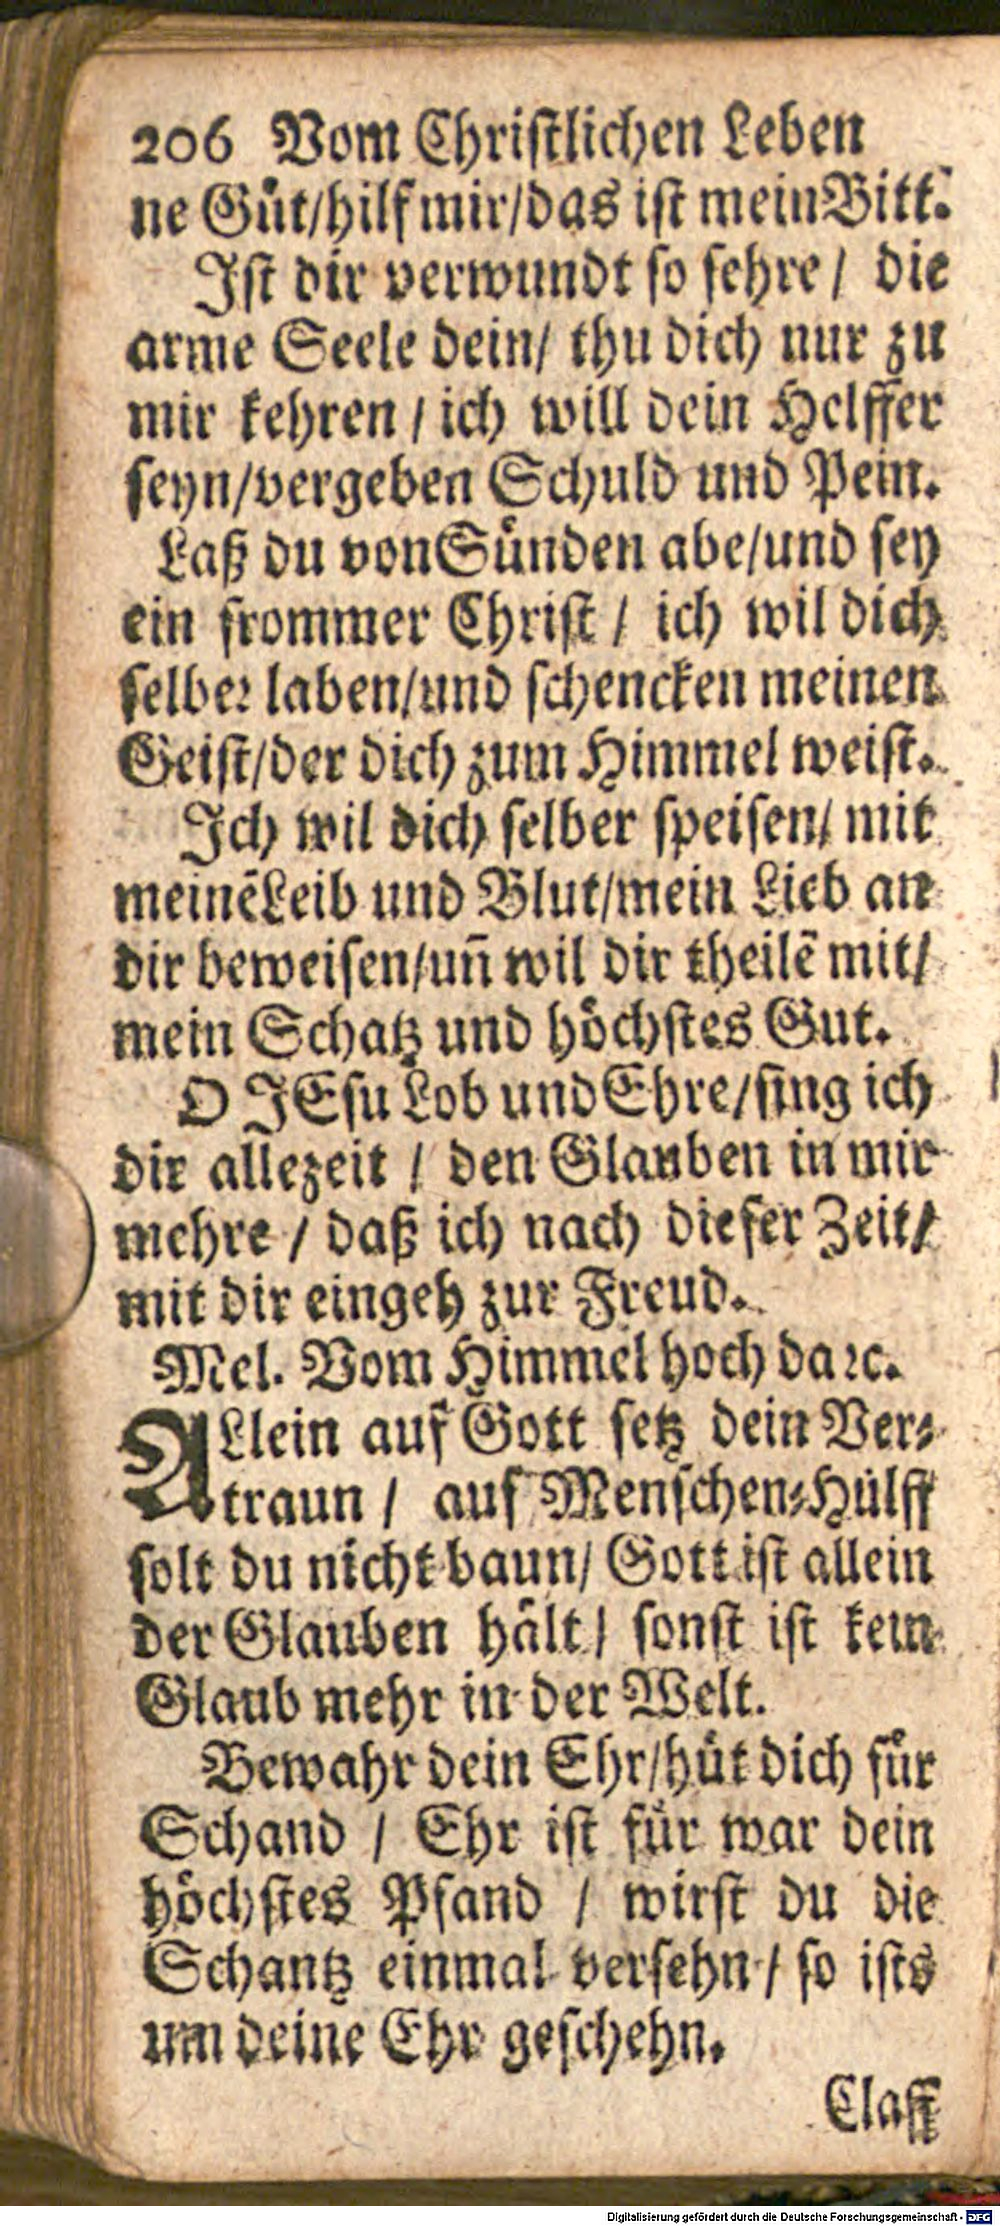 206 Vom Chriſtlichen Leben
ne Guͤt/hilf mir/das iſt mein Bitt.
Iſt dir verwundt ſo ſehre / die
arme Seele dein/ thu dich nur zu
mir kehren / ich will dein Helffer
ſeyn/vergeben Schuld und Pein.
Laß du von Suͤnden abe/und ſey
ein frommer Chriſt / ich wil dich
ſelber laben/und ſchencken meinen
Geiſt/der dich zum Himmel weiſt.
Ich wil dich ſelber ſpeiſen/ mit
meinē Leib und Blut/mein Lieb an
dir beweiſen/un̄ wil dir theilē mit/
mein Schatz und hoͤchſtes Gut.
O JEſu Lob und Ehre/ſing ich
dir allezeit / den Glauben in mir
mehre / daß ich nach dieſer Zeit/
mit dir eingeh zur Freud.
Mel. Vom Himmel hoch da ꝛc.
ALlein auf Gott ſetz dein Ver⸗
traun / auf Menſchen⸗Huͤlff
ſolt du nicht baun/ Gott iſt allein
der Glauben haͤlt/ ſonſt iſt kein
Glaub mehr in der Welt.
Bewahr dein Ehr/huͤt dich fuͤr
Schand / Ehr iſt fuͤr war dein
hoͤchſtes Pfand / wirſt du die
Schantz einmal verſehn / ſo iſts
um deine Ehr geſchehn.
Claff
Digitalisierung gefördert durch die Deutsche Forschungsgemeinschaft - DFG